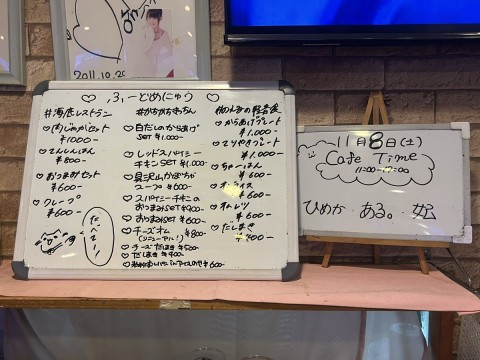 2011.10.20
♡ ふーどめにゅう ♡
#海底レストラン
♡ (お)じゃがセット
¥1000-
♡ てんしんはん
¥800-
♡ おつまみセット
¥600-
♡ クレープ
¥600-
たべて〜!
#からからきっちん
♡ 白だしのからあげ
SET ¥1,000-
♡ レッドスパイシー
チキンSET ¥1,000
♡ 貝沢山かぼちゃ
スープ ¥600-
♡ スパイシーチキンの
おつまみSET ¥900-
♡ おつまみSET ¥600-
♡ チーズオム
¥800-
♡ チーズだしまき ¥500-
♡ だしまき ¥400-
¥600-
の軽食屋
♡ からあげプレート
¥1,000-
♡ てりやきプレート
¥1,000
♡ ちゃーはん
¥600
♡ オムライス
¥600-
♡ オムレツ
¥600-
♡ だしまき
¥400-
11月8日(土)
Cafe Time
ひめか ある。 妃